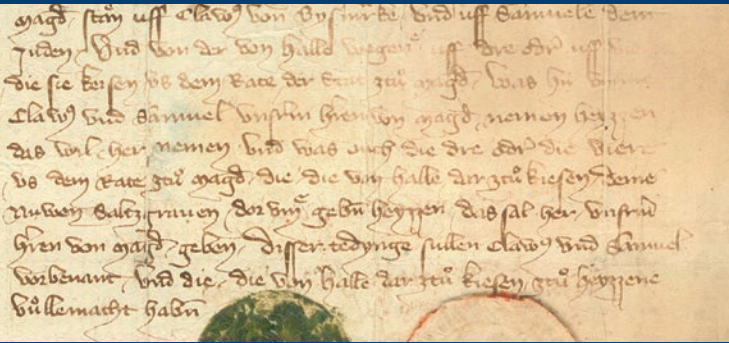 magd, stan uff Clawꝰ von Bysmirke und uff Samuele dem
Juden Und von der von Halle wegen uff dre odir uff
die sie keisen vs dem Rate der Stat ztů magd, was hir
Clawꝰ vnd Samuel vnsirm hren von magd, nemen heyzzen
das wil her nemen vnd was ouch die dre odir die viere
vs dem Rate ztů magd, die, die von halle dar ztů kiesen, deme
Nuwen Saltzgrauen, dor vm̄, gebn̄ heyzzen, das sal her vnsirm
hren von magd, geben, disser tedynge sullen Clawꝰ vnd Samuel
vorbenant, vnd die, die von halle dar ztů kiesen, ztů heyzzene
vůllemacht habn̄